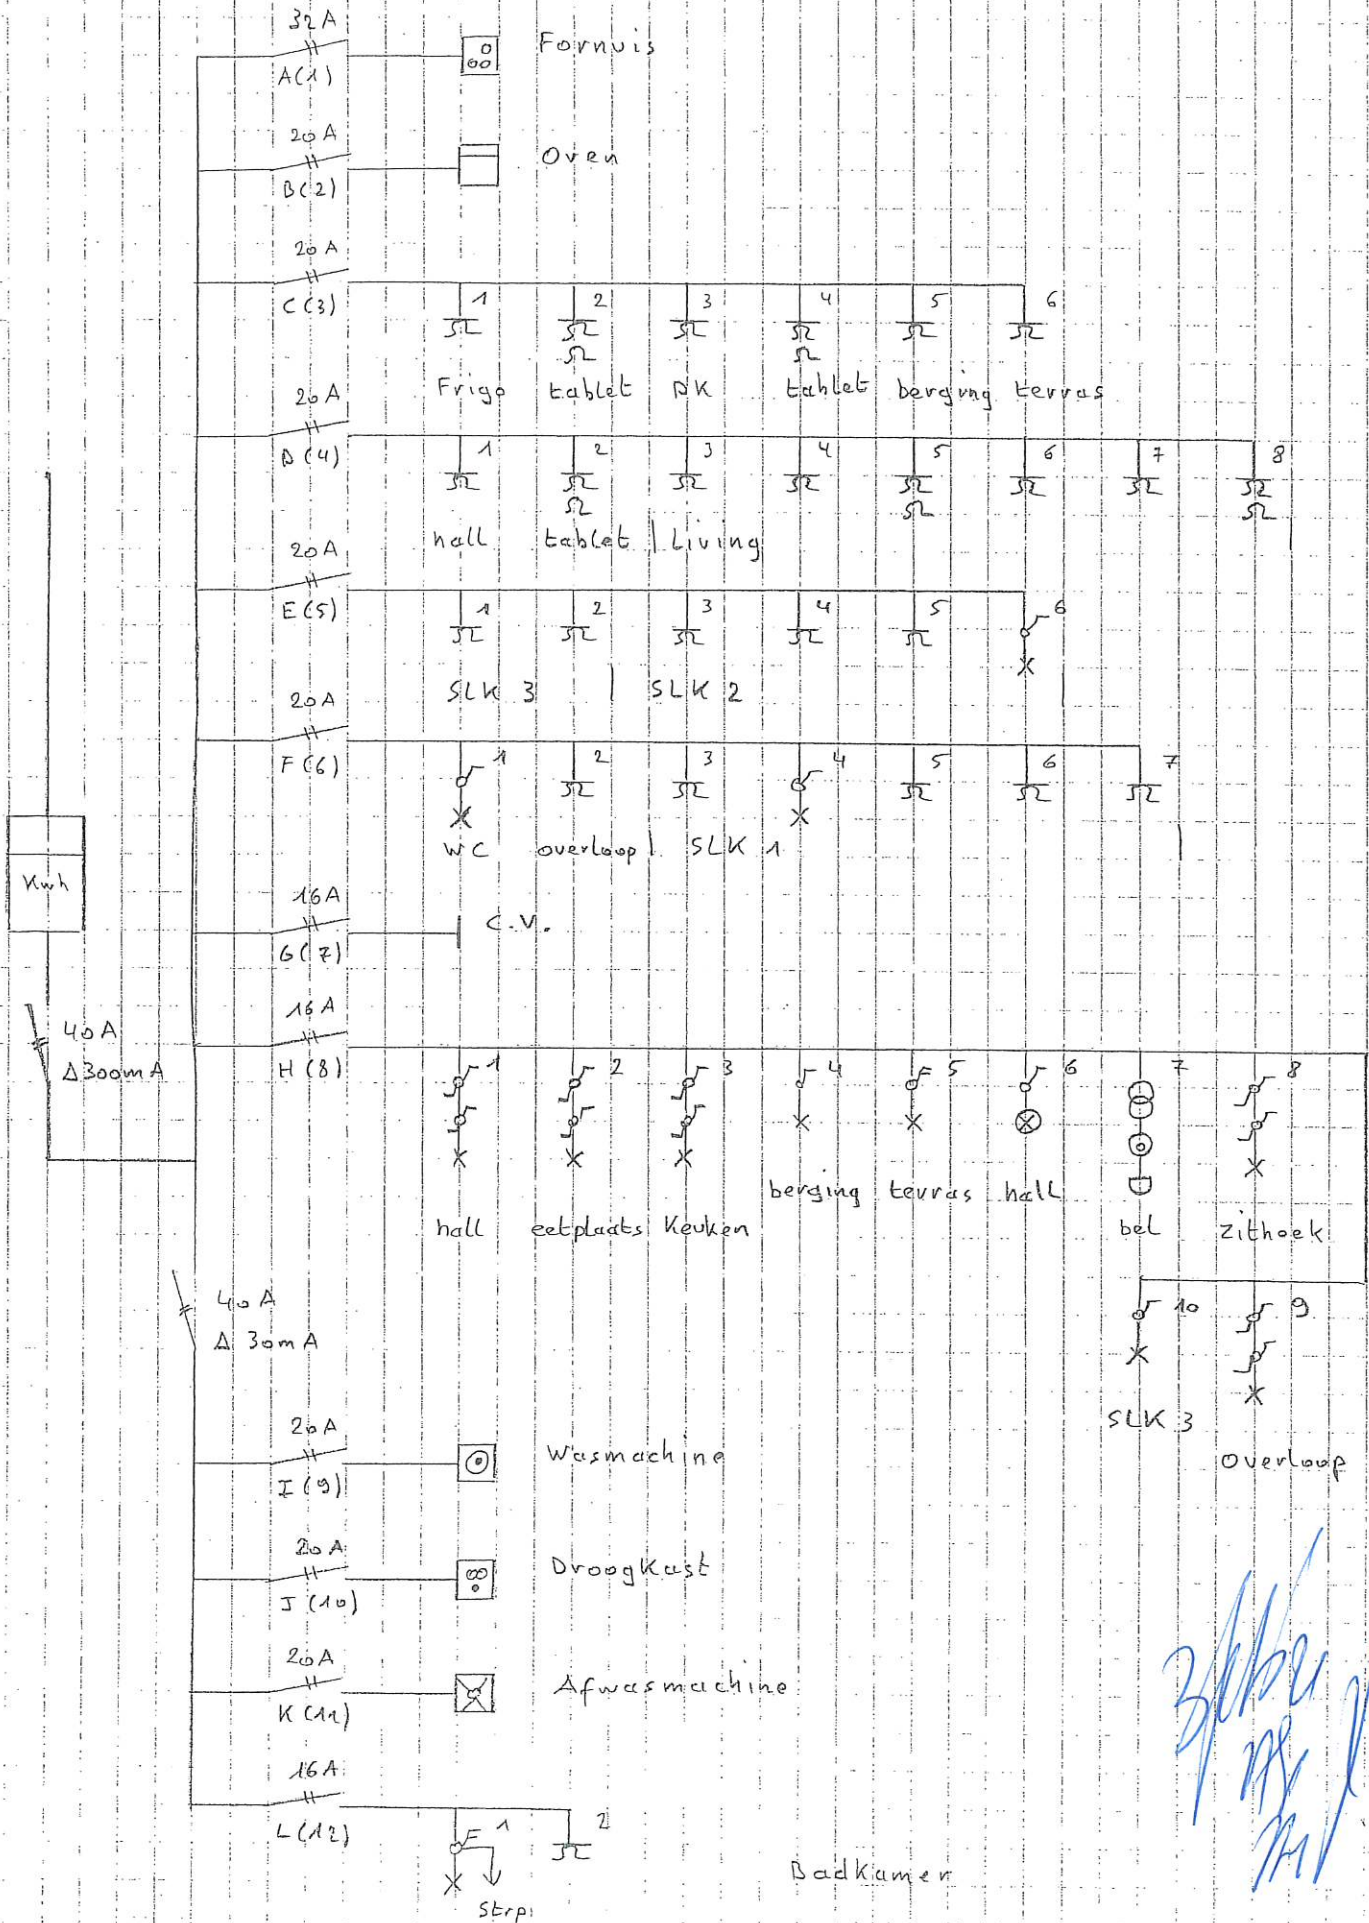 32A
A(1)
Fornuis
20A
B(2)
Oven
20A
C(3)
1 2 3 4 5 6
Frigo tablet DK tablet berging terras
20A
D(4)
1 2 3 4 5 6 7 8
hall tablet | Living
20A
E(5)
1 2 3 4 5 6
SLK 3 | SLK 2
20A
F(6)
1 2 3 4 5 6 7
WC overloop | SLK 1
Kwh
16A
G(7)
C.V.
40A
Δ300mA
16A
H(8)
1 2 3 4 5 6 7 8
berging terras hall
hall eetplaats Keuken bel zithoek
40A
Δ 30mA
10 9
SLK 3
overloop
20A
I(9)
Wasmachine
20A
J(10)
Droogkast
20A
K(11)
Afwasmachine
16A
L(12)
1 2
Badkamer